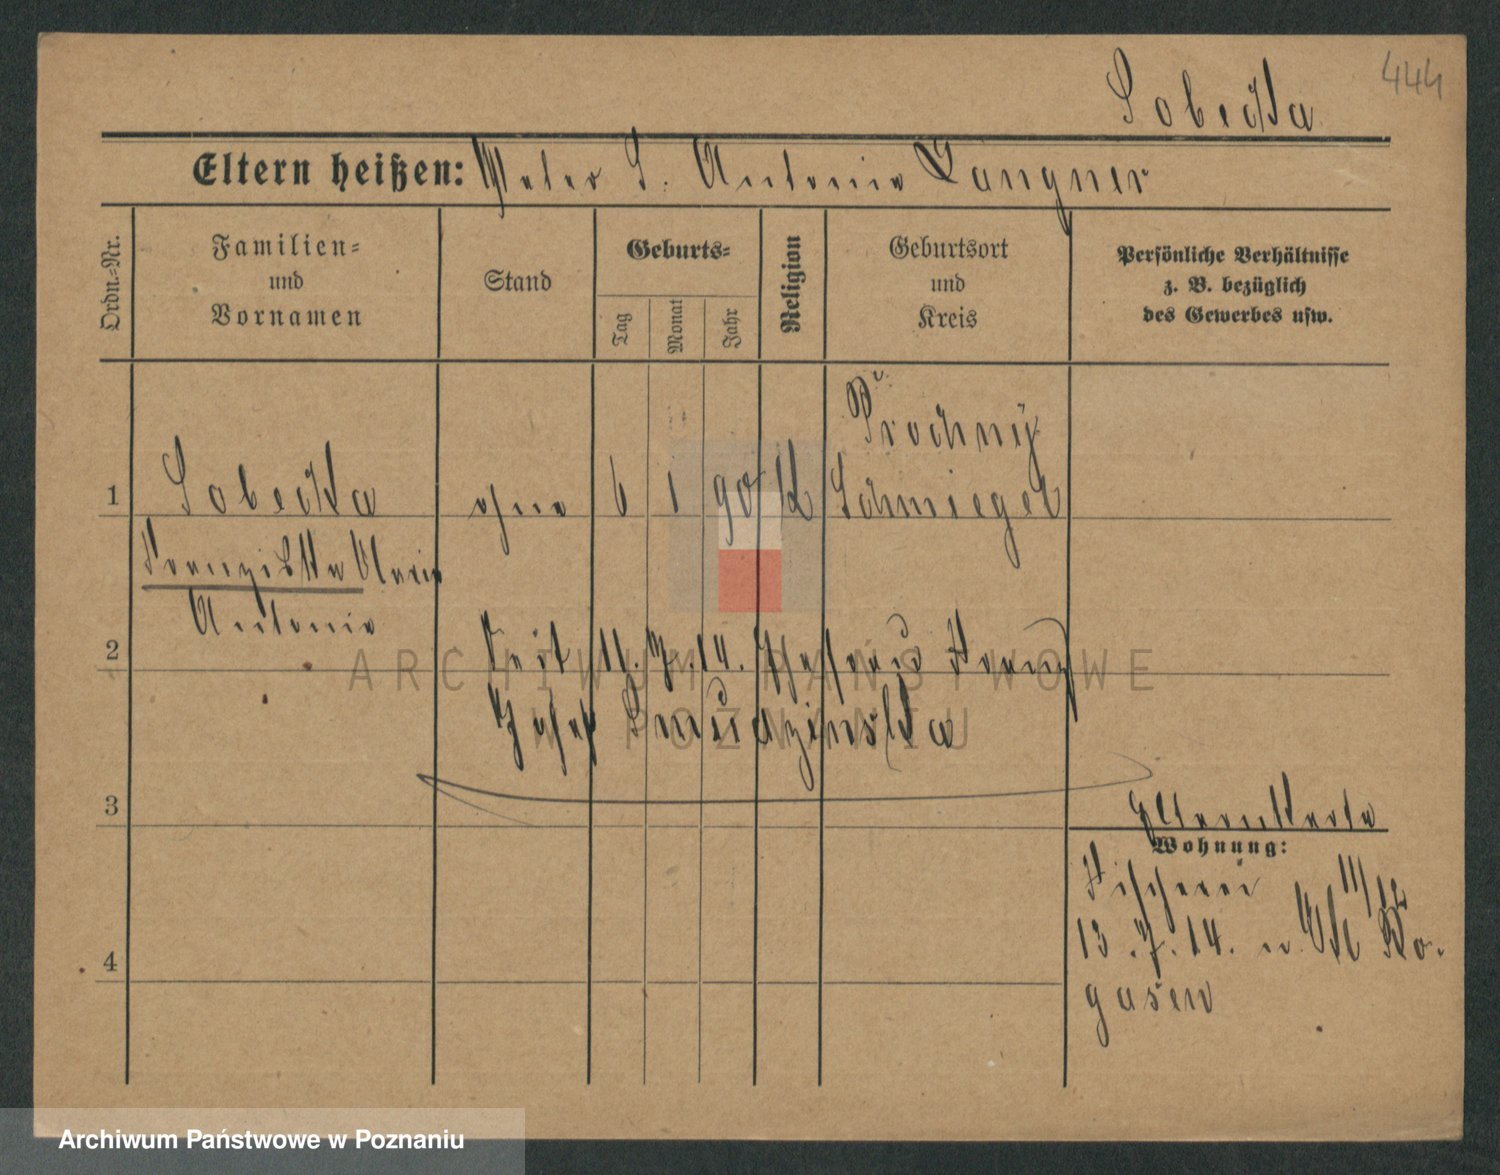 444
Sobecka
Eltern heißen: Peter S. Antonie Langner
Ordn.=Nr.
Familien=
und
Vornamen
Stand
Geburts=
Tag
Monat
Jahr
Religion
Geburtsort
und
Kreis
Persönliche Verhältnisse
z. B. bezüglich
des Gewerbes usw.
Prochny
1 Sobecka ohne 6 1 90 k Schmiegel
Franziska Maria
Antonie
2 Seit 11. 7. 14. Ehefrau Franz
Josef Smudzinska
ARCHIWUM PAŃSTWOWE
W POZNANIU
3 Elternkarte
Wohnung:
Fischerei 11/12
13.7.14. n. Ro-
4
gasen
Archiwum Państwowe w Poznaniu